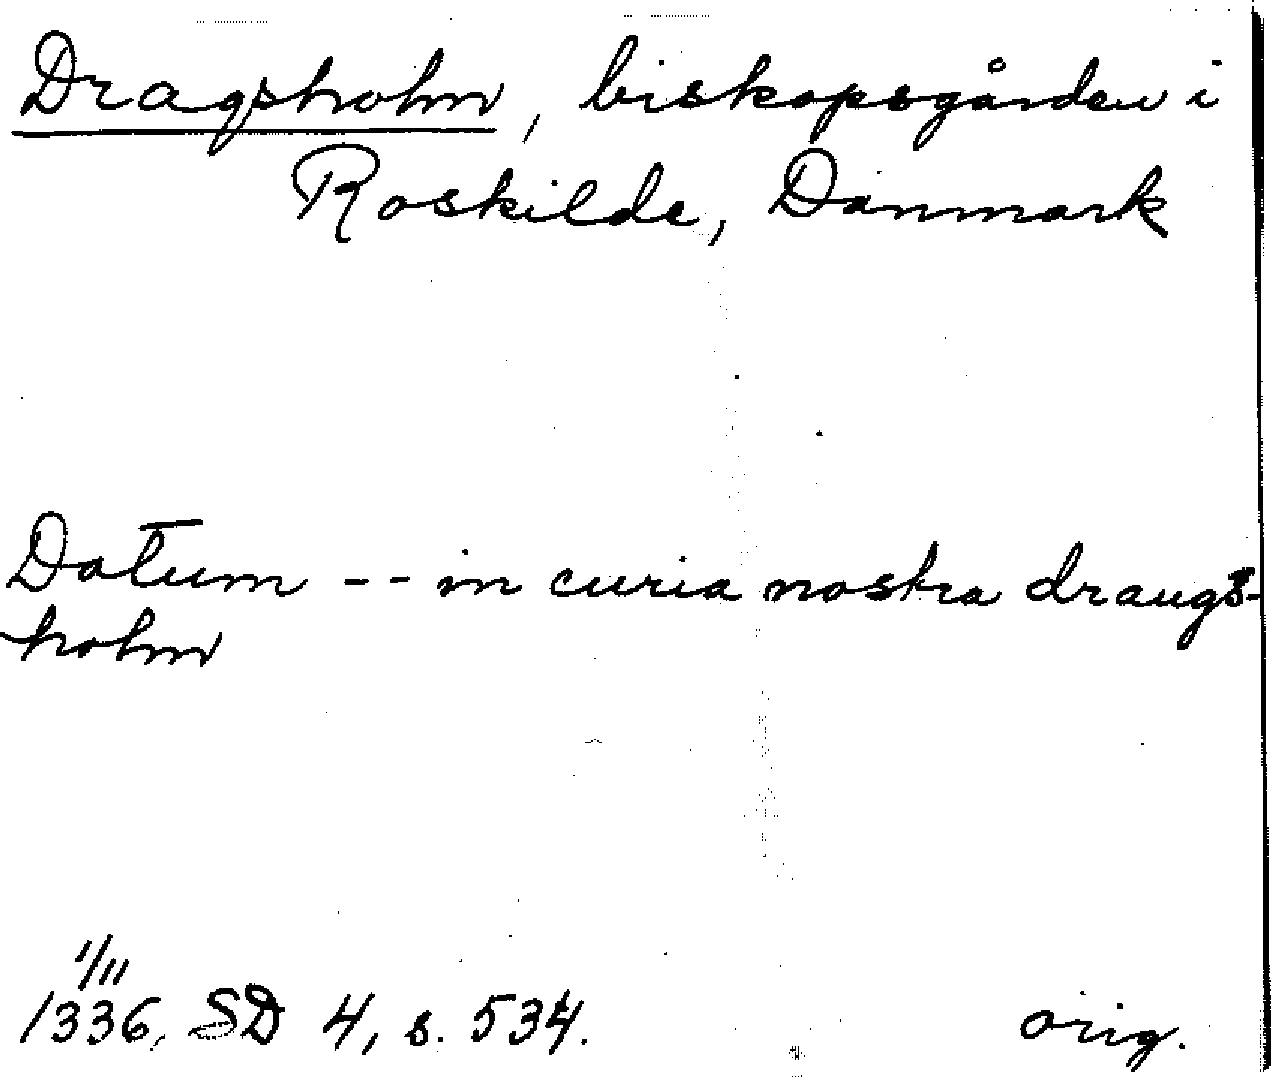 Dragsholm, biskopsgården i
Roskilde, Danmark
Datum -- in curia nostra draugs-
holm
1/11
1336, SD 4, s. 534. orig.